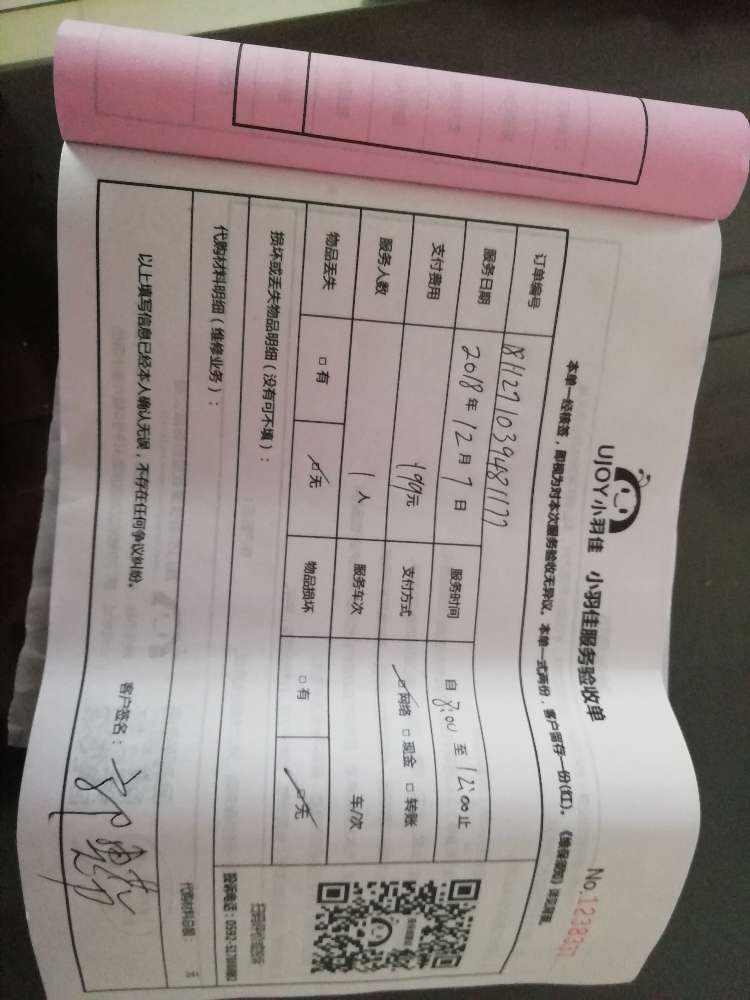 UJOY小羽佳 小羽佳服务验收单
No.1238337
本单一经接签，即视为对本次服务验收无异议。本单一式两份，客户留存一份(红)。《维保须知》详见背面
订单编号 181127103948177
服务日期 2018年12月7日 服务时间 自 8:00 至 12:00 止
支付费用 199元 支付方式 ☑网络 □现金 □转账
服务人数 1人 服务车次 车/次
物品丢失 □有 ☑无 物品损坏 □有 ☑无
损坏或丢失物品明细（没有可不填）：
投诉电话：0592-
代购材料明细（维修业务）：
代购材料总额： 元
以上填写信息已经本人确认无误，不存在任何争议纠纷。
客户签名：